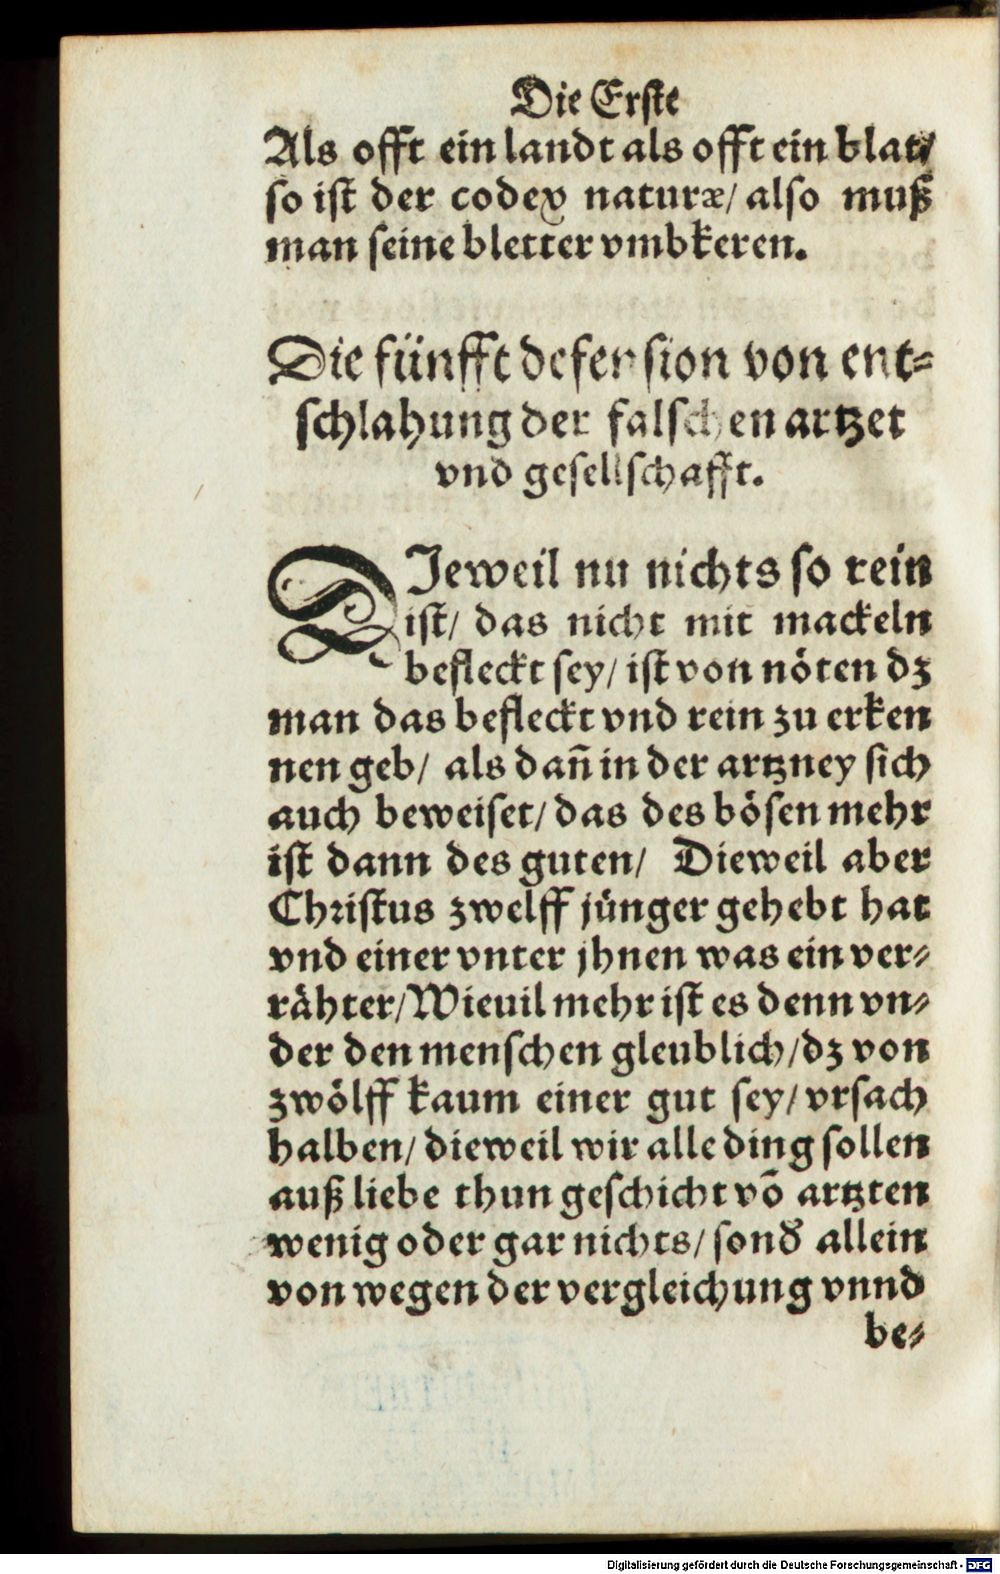 Die Erste
Als offt ein landt als offt ein blat/
so ist der codex naturæ/ also muß
man seine bletter vmbkeren.
Die fünfft defension von ent-
schlahung der falschen artzet
vnd gesellschafft.
DIeweil nu nichts so rein
ist/ das nicht mit mackeln
befleckt sey/ ist von nöten dz
man das befleckt vnd rein zu erken
nen geb/ als dañ in der artzney sich
auch beweiset/ das des bösen mehr
ist dann des guten/ Dieweil aber
Christus zwelff jünger gehebt hat
vnd einer vnter jhnen was ein ver-
rähter/ Wieuil mehr ist es denn vn-
der den menschen gleublich/ dz von
zwölff kaum einer gut sey/ vrsach
halben/ dieweil wir alle ding sollen
auß liebe thun geschicht võ artzten
wenig oder gar nichts/ sonď allein
von wegen der vergleichung vnnd
be-
Digitalisierung gefördert durch die Deutsche Forschungsgemeinschaft - DFG